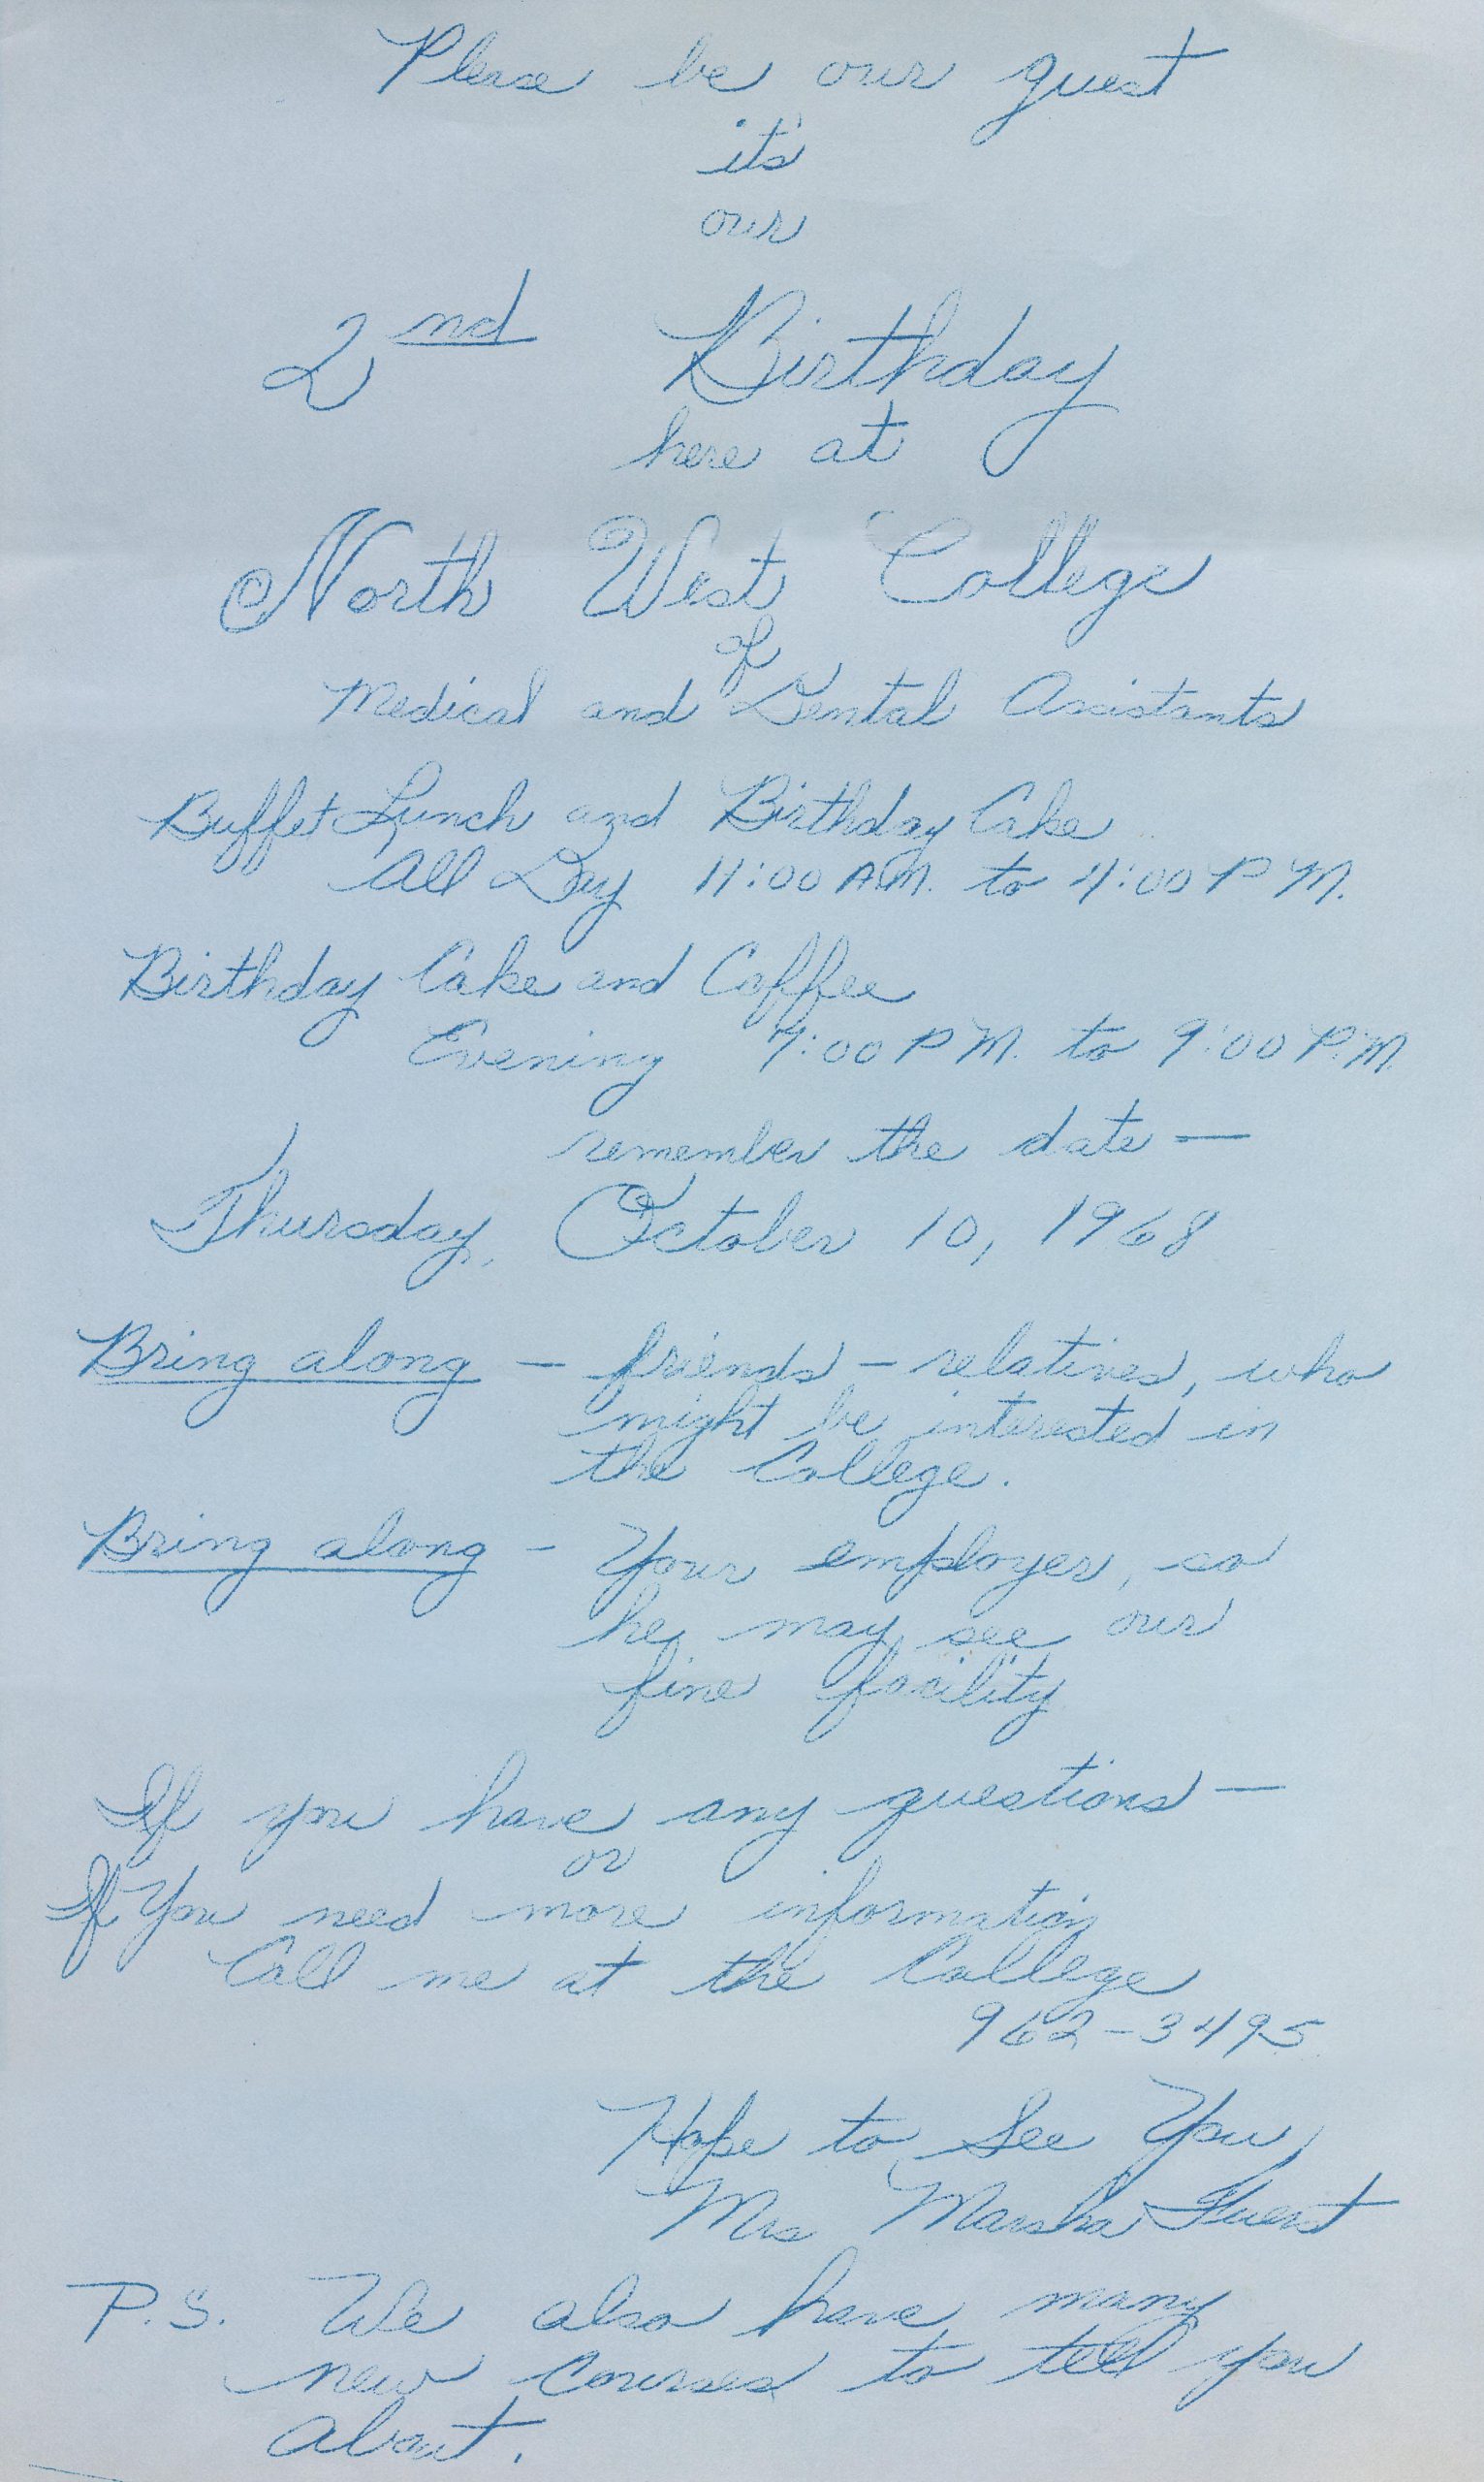 Please be our guest
it's
our
2nd Birthday
here at
North West College
of
Medical and Dental Assistants
Buffet Lunch and Birthday Cake
All Day 11:00 A.M. to 4:00 P.M.
Birthday Cake and Coffee
Evening 7:00 P.M. to 9:00 P.M.
remember the date —
Thursday, October 10, 1968
Bring along — friends – relatives, who
might be interested in
the College.
Bring along – Your employer, so
he may see our
fine facility
If you have any questions —
or
If You need more information
Call me at the College
962-3495
Hope to See You,
Mrs Marsha Fuerst
P.S. We also have many
new courses to tell you
about.